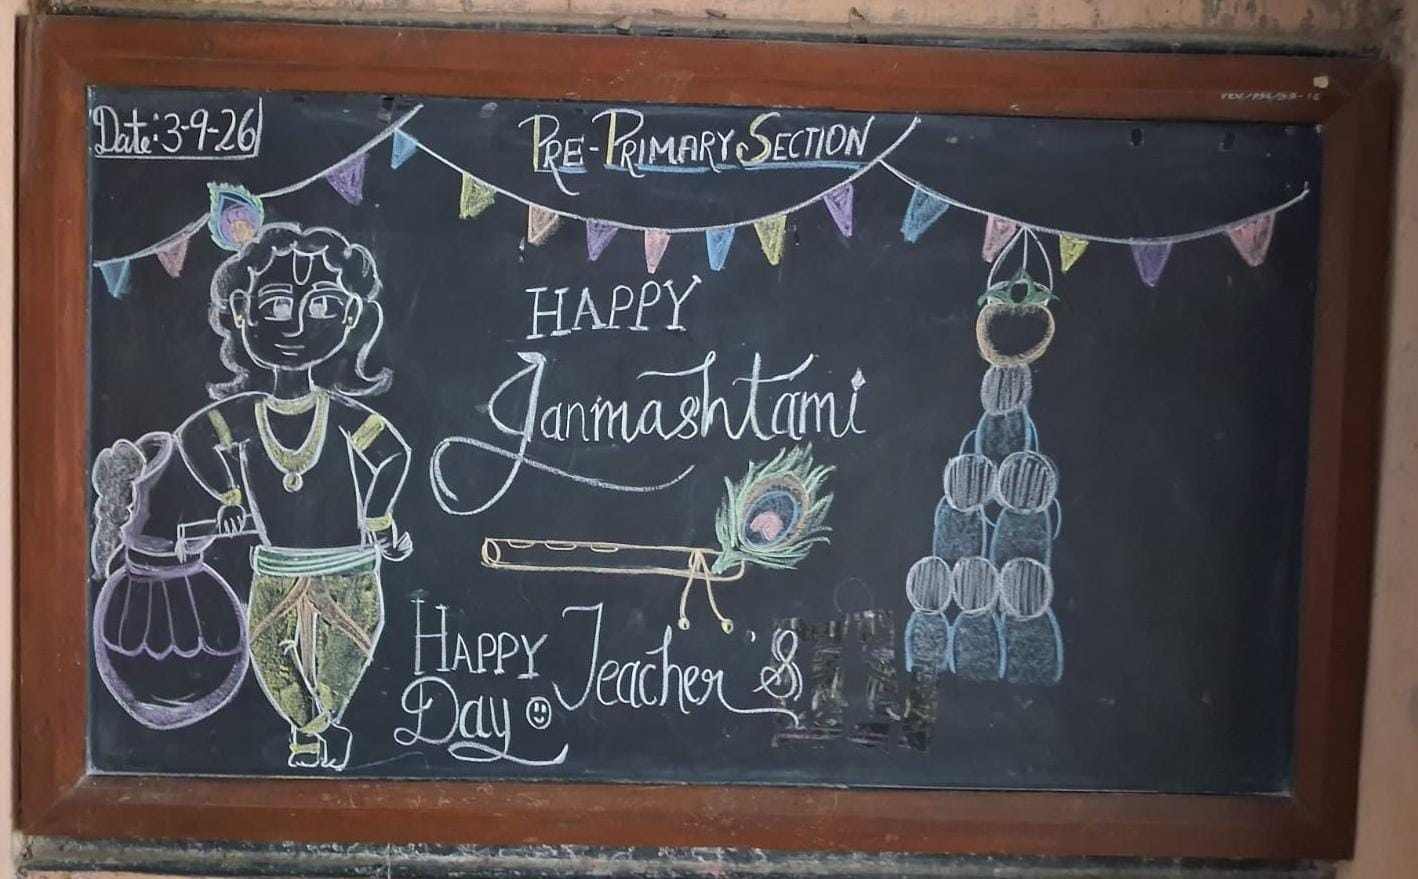 Date: 3-9-26
PRE-PRIMARY SECTION
HAPPY
Janmashtami
HAPPY Teacher's
Day